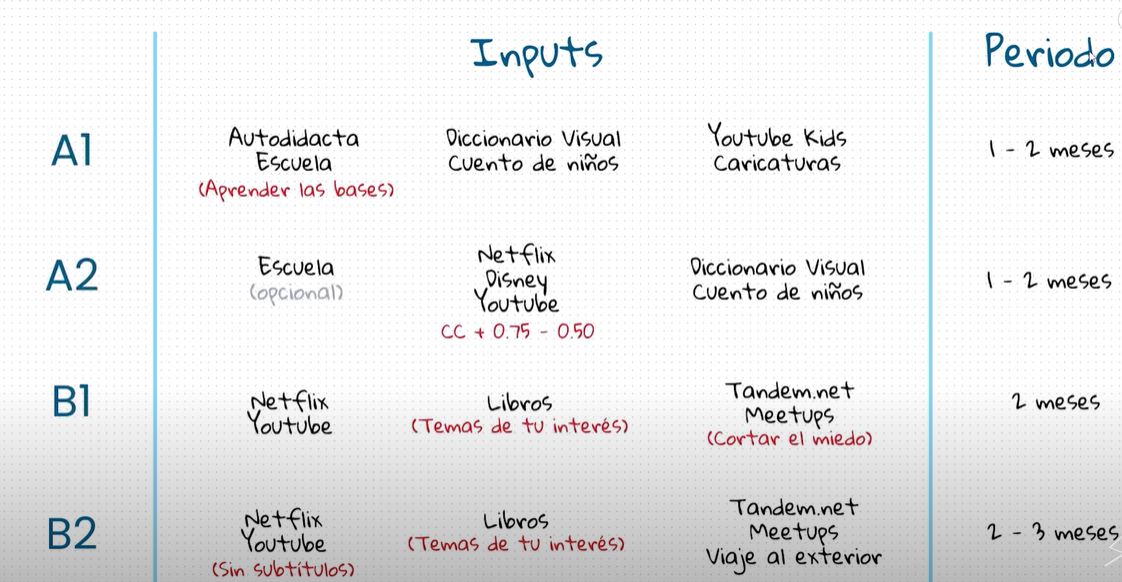 Inputs
Periodo
A1
Autodidacta
Escuela
(Aprender las bases)
Diccionario Visual
Cuento de niños
Youtube Kids
Caricaturas
1 - 2 meses
A2
Escuela
(opcional)
Netflix
Disney
Youtube
CC + 0.75 - 0.50
Diccionario Visual
Cuento de niños
1 - 2 meses
B1
Netflix
Youtube
Libros
(Temas de tu interés)
Tandem.net
Meetups
(Cortar el miedo)
2 meses
B2
Netflix
Youtube
(Sin subtítulos)
Libros
(Temas de tu interés)
Tandem.net
Meetups
Viaje al exterior
2 - 3 meses